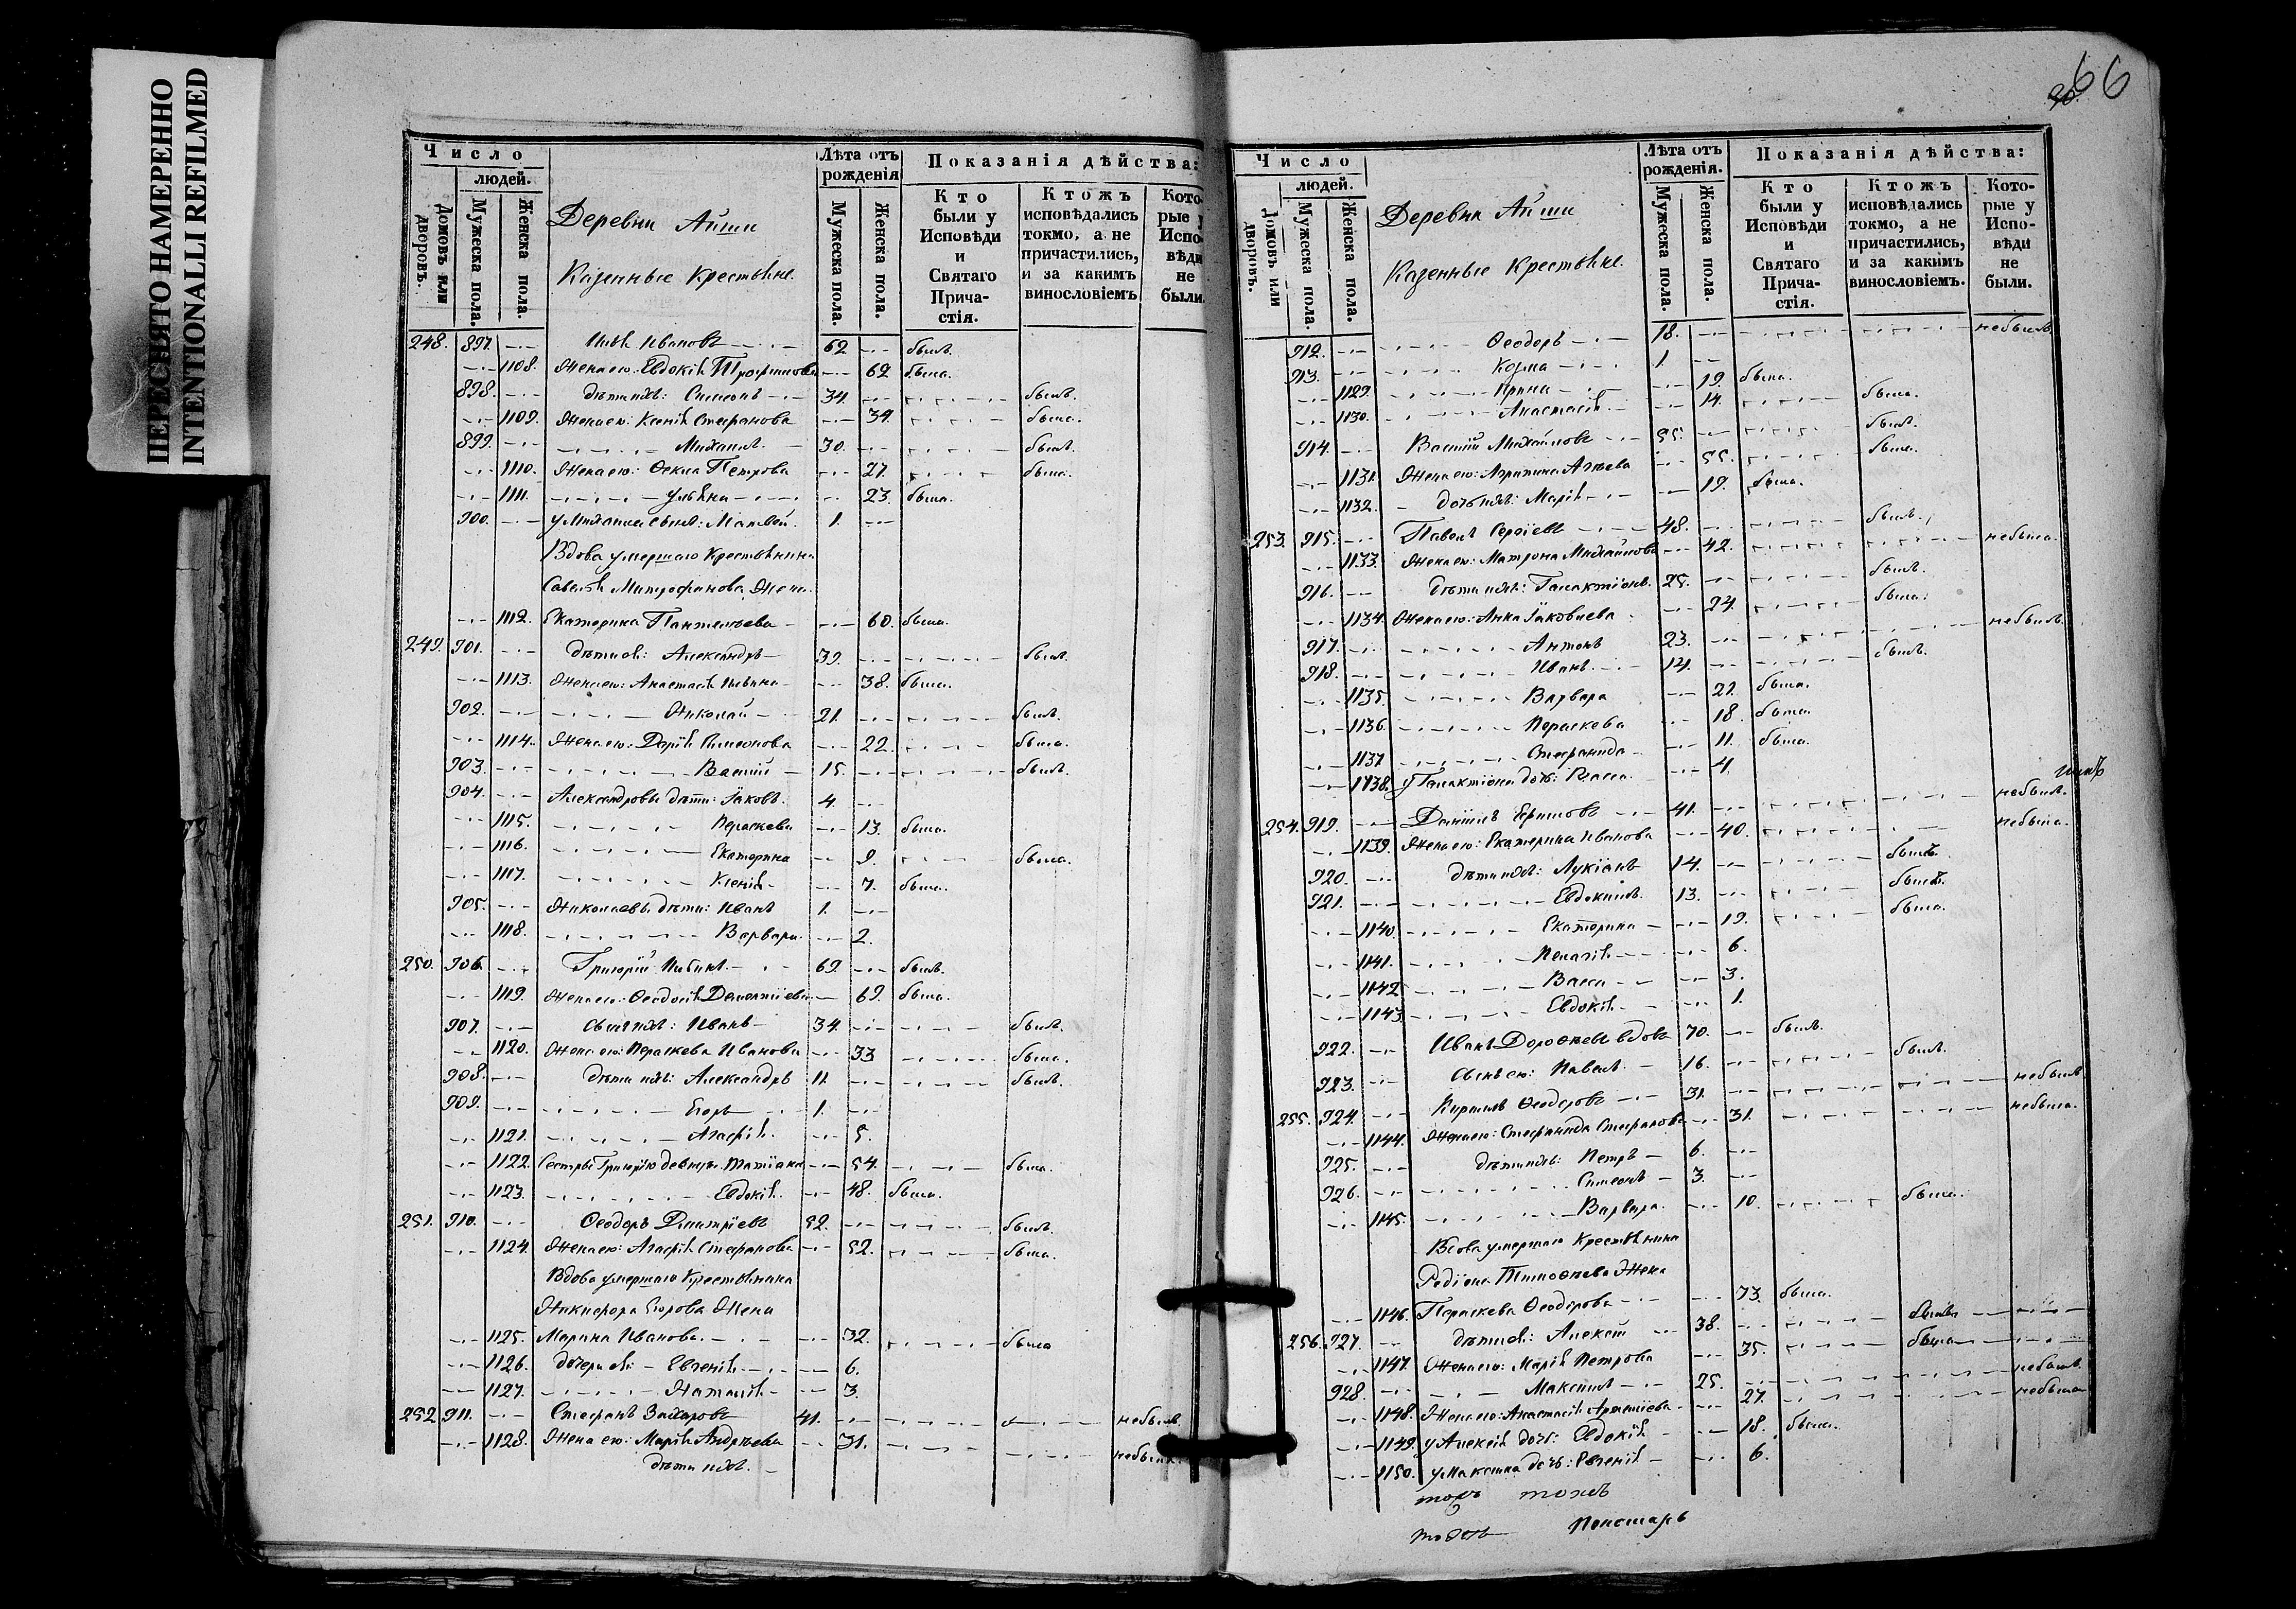 ПЕРЕСНЯТО НАМЕРЕННО
INTENTIONALLI REFILMED
Число
людей.
Домовъ или дворовъ.
Мужеска пола.
Женска пола.
Деревни Айши
Казенные Крестьяне.
Лѣта отъ рожденія
Мужеска пола.
Женска пола.
Показанія дѣйства:
Кто были у Исповѣди и Святаго Прича-стія.
Ктожъ исповѣдались токмо, а не причастились, и за какимъ винословіемъ
Кото рые у Испо вѣди не были.
248. 897. Иванов 62 былъ.
1108. Жена его: Евдокія Трофимова 62 была.
898. дѣти ихъ: Симеонъ 34. былъ.
1109. Жена его: Ксенія Стефанова 34. была.
899. Михаилъ 30. былъ.
1110. Жена его: Фекла Петрова 27. была.
1111. Ульяна 23. была.
900. у Михаила сынъ: Матвѣй 1.
Вдова умершаго Крестьянина
Савелья Митрофанова Жена
1112. Екатерина Пантелѣева 60. была.
249. 901. дѣти ея: Александръ 39. былъ.
1113. Жена его: Анастасія 38. была.
902. Николай 21. былъ.
1114. Жена его: Дарія Симеонова 22. была.
903. Василій 15. былъ.
904. Александровы дѣти: Іаковъ 4.
1115. Параскева 13. была.
1116. Екатерина 9. была.
1117. Ксенія 7. была.
905. Николаевы дѣти: Иванъ 1.
1118. Варвара 2.
250. 906. Григорій 69. былъ.
1119. Жена его: Феодосія Дементіева 69. была.
907. сынъ ихъ: Иванъ 34. былъ.
1120. Жена его: Параскева Иванова 33 была.
908. дѣти ихъ: Александръ 11. былъ.
909. Егоръ 1.
1121. Агафія 5.
1122. Сестры Григорію девицы: Татіана 54. была.
1123. Евдокія 48. была.
251. 910. Феодоръ Дмитріевъ 52. былъ.
1124. Жена его: Агафія Стефанова 52. была.
Вдова умершаго Крестьянина
Никифора Егорова Жена
1125. Марина Иванова 32. была
1126. дочери ея: Евгенія 6.
1127. Наталія 3.
252. 911. Стефанъ Захаровъ 41. небылъ.
1128. Жена его: Марія Андрѣева 31. небыла.
дѣти ихъ.
66
Число
людей.
Домовъ или дворовъ.
Мужеска пола.
Женска пола.
Деревни Айши
Казенные Крестьяне.
Лѣта отъ рожденія.
Мужеска пола.
Женска пола.
Показанія дѣйства:
Кто были у Исповѣди и Святаго Прича-стія.
Ктожъ исповѣдались токмо, а не причастились, и за какимъ винословіемъ.
Кото-рые у Испо-вѣди не были.
912. Феодоръ 18. небылъ.
913. Козма 1.
1129. Ирина 19. была.
1130. Анастасія 14. была.
914. Василій Михайловъ 55. былъ.
1131. Жена его: Агрипина 55. была.
1132. дочь ихъ: Марія 19. была.
253. 915. Павелъ Сергіевъ 48. былъ.
1133. Жена его: Матрона Михайлова 42. небыла.
916. дѣти ихъ: Галактіонъ 25. былъ.
1134. Жена его: Анна Іаковлева 24. была.
917. Антонъ 23. небылъ.
918. Иванъ 14. былъ.
1135. Варвара 21. была.
1136. Параскева 18. была.
1137. Стефанида 11. была.
1138. у Галактіона дочь: Васса 4.
254. 919. Даніилъ 41. небылъ.
1139. Жена его: Екатерина Иванова 40. небыла.
920. дѣти ихъ: Лукіанъ 14. былъ.
921. Евдокимъ 13. былъ.
1140. Екатерина 19. была.
1141. Пелагія 6.
1142 Васса 3.
1143. Евдокія 1.
922. Иванъ Дорофѣевъ вдовъ 70. былъ.
923. сынъ его: Павелъ 16. былъ.
255. 924. Кирилъ Феодоровъ 31. небылъ
1144. Жена его: Стефанида Стефанова 31. небыла.
925. дѣти ихъ: Петръ 6.
926. Симеонъ 3.
1145. Варвара 10. была.
Вдова умершаго Крестьянина
Родіона Тимофѣева Жена
1146. Параскева Феодорова 73. была.
256. 927. дѣти ея: Алексій 38. былъ
1147. Жена его: Марія Петрова 35. была
928. Максимъ 25. небылъ.
1148. Жена его: Анастасія Артеміева 27. небыла
1149. у Алексія дочь: Евдокія 18. была.
1150. у Максима дочь: Евгенія 6.
Пономарь